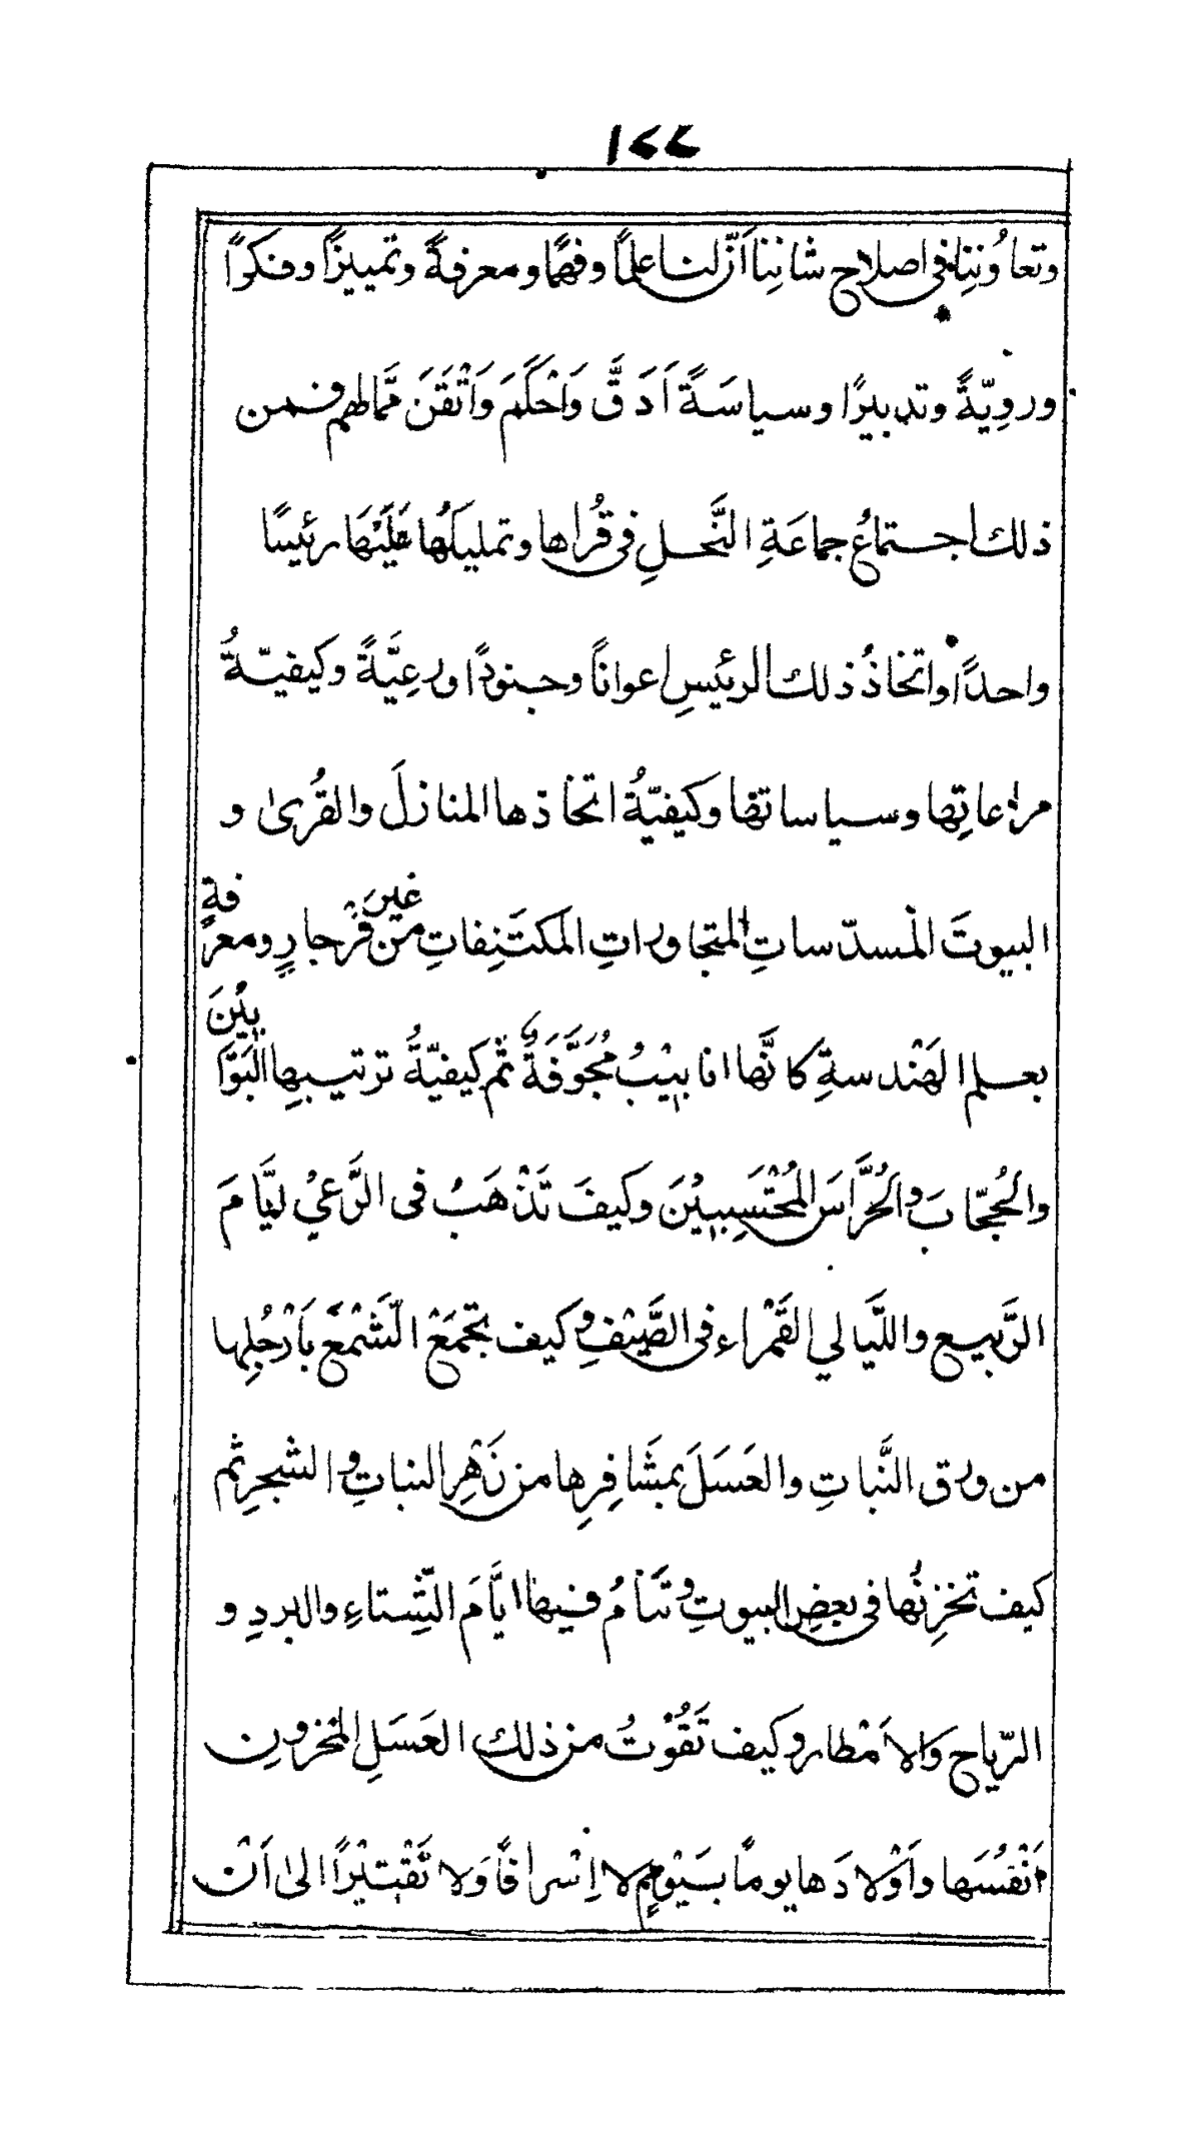 ١٤٤
وتعاوُنِنا فى اصلاح شانِنا اَنّ لنا علمًا وفهمًا ومعرفةً وتمييزًا وفكرًا
ورويّةً وتدبيرًا وسياسَةً اَدَقَّ وَاَحْكَمَ وَاَتْقَنَ مَّمالهم فمن
ذلك اجتماعُ جماعَةِ النَّحلِ فى قُراها وتمليكُها عَلَيْهَا رئيسًا
واحدًا واتخاذُ ذلك الرئيسِ اعوانًا وجنودًا ورعِيَّةً وكيفيّةُ
مراعاتِها وسياساتها وكيفيّةُ اتخاذها المنازلَ والقُرىٰ و
البيوتَ المسدّساتِ المتجاوراتِ المكتَنِفاتِ من غير فرْجارٍ ومعرفةٍ
بعلم الهَنْدسةِ كانَّها انابيْبُ مُجَوَّفَةٌ ثم كيفيّةُ ترتيبِها البَوّابِيْنَ
والحُجّابَ والحُرَّاسَ المُحْتَسِبِيْنَ وكيفَ تَذْهَبُ فى الرَّعيْ ليَّامَ
الرَّبيع واللَّيالي القَمْراءِ فى الصَّيْفِ وكيف تجمَعْ الشَّمْعَ بأرْجُلِها
من ورق النَّباتِ والعَسَلَ بمشَافِرِها من زَهْرِ النباتِ والشجرِ ثم
كيف تخزِنُها فى بعضِ البيوتِ وتَنامُ فيها ايَّامَ الشّتاءِ والبردِ و
الرّياح وَالاَمْطار وكيف تَقُوْتُ من ذلك العَسَلِ المخزونِ
اَنْفُسَها واَوْلادَها يومًا بسَيْومٍ لا اِسْرافًا وَلا تَقْتِيْرًا الىٰ اَنْ